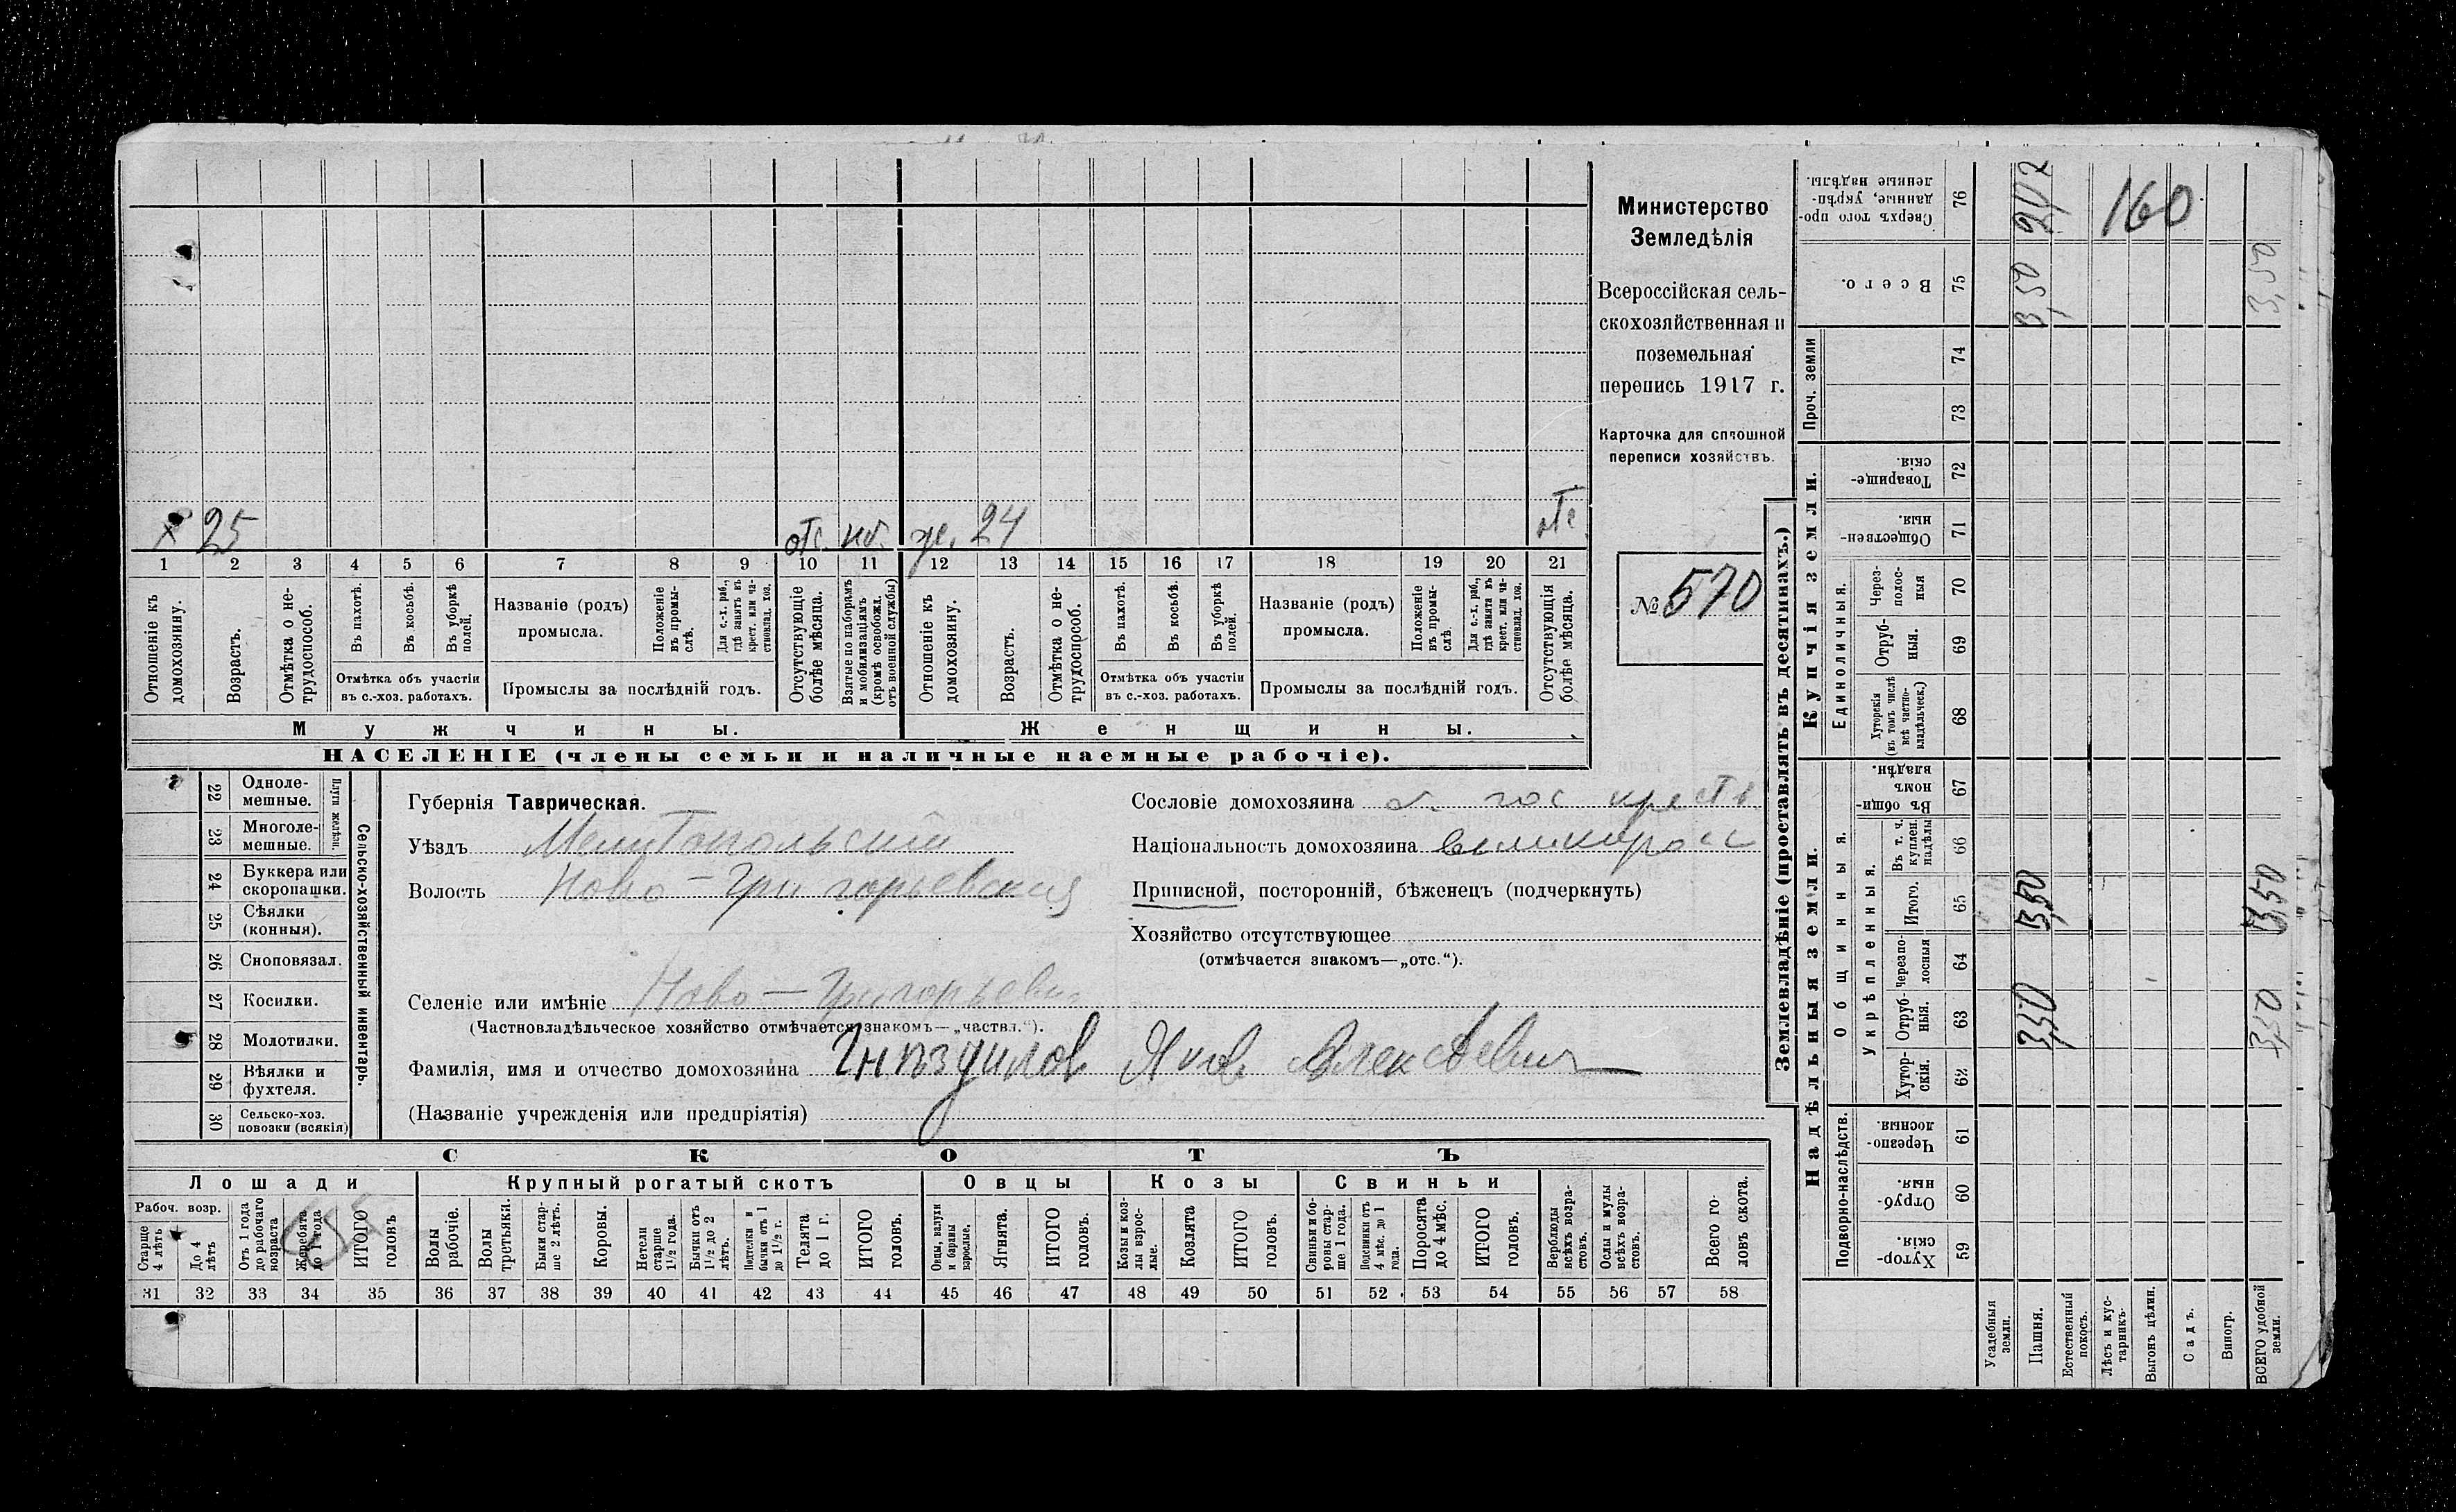 х 25 отс. нб. же. 24 отс
1 2 3 4 5 6 7 8 9 10 11 12 13 14 15 16 17 18 19 20 21
Отношеніе къ домохозяину.
Возрастъ.
Отмѣтка о не-трудоспособ.
Въ пахотѣ.
Въ косьбѣ.
Въ уборкѣ полей.
Отмѣтка объ участіи
въ с.-хоз. работахъ.
Названіе (родъ)
промысла.
Положеніе въ промы-слѣ.
Для с.-х. раб., гдѣ занятъ въ крест. или ча-стновлад. хоз.
Промыслы за послѣдній годъ.
Отсутствующіе болѣе мѣсяца.
Взятые по наборамъ и мобилизаціямъ (кромѣ освобожд. отъ военной службы)
Отношеніе къ домохозяину.
Возрастъ.
Отмѣтка о не-трудоспособ.
Въ пахотѣ.
Въ косьбѣ.
Въ уборкѣ полей.
Отмѣтка объ участіи
въ с.-хоз. работахъ.
Названіе (родъ)
промысла.
Положеніе въ промы-слѣ.
Для с.-х. раб., гдѣ занята въ крест. или ча-стновлад. хоз.
Промыслы за послѣдній годъ.
Отсутствующія болѣе мѣсяца.
Мужчины.
Женщины.
НАСЕЛЕНІЕ (члены семьи и наличные наемные рабочіе).
Министерство
Земледѣлія
Всероссійская сель-
скохозяйственная и
поземельная
перепись 1917 г.
Карточка для сплошной
переписи хозяйствъ.
№ 570
22 Одноле-мешные.
23 Многоле-мешные.
Плуги желѣзн.
24 Буккера или скоропашки.
25 Сѣялки (конныя).
26 Сноповязал.
27 Косилки.
28 Молотилки.
29 Вѣялки и фухтеля.
30 Сельско-хоз. повозки (всякія)
Сельско-хозяйственный инвентарь
Губернія Таврическая.
Уѣздъ Мелитопольскій
Волость Ново-Григорьевская
Селеніе или имѣніе Ново-Григорьевка
(Частновладѣльческое хозяйство отмѣчается знакомъ—„частвл.“).
Фамилія, имя и отчество домохозяина Гнѣздилов Яков Алексѣевич
(Названіе учрежденія или предпріятія)
Сословіе домохозяина б. гос крестъ
Національность домохозяина великоросс
Приписной, посторонній, бѣженецъ (подчеркнуть)
Хозяйство отсутствующее
(отмѣчается знакомъ—„отс.“).
СКОТЪ
Лошади
Рабоч. возр.
Старше 4 лѣтъ
До 4 лѣтъ
Отъ 1 года до рабочаго возраста
Жеребята до 1 года
ИТОГО головъ
Крупный рогатый скотъ
Волы рабочіе.
Волы третьяки.
Быки стар-ше 2 лѣтъ.
Коровы.
Нетели старше 1½ года.
Бычки отъ 1½ до 2 лѣтъ.
Подтелки и бычки отъ 1 до 1½ г.
Телята до 1 г.
ИТОГО головъ.
Овцы
Овцы, валухи и бараны взрослые.
Ягнята.
ИТОГО головъ.
Козы
Козы и коз-лы взрос-лые.
Козлята
ИТОГО головъ.
Свиньи
Свиньи и бо-ровы стар-ше 1 года.
Подсвинки отъ 4 мѣс. до 1 года.
Поросята до 4 мѣс.
ИТОГО головъ.
Верблюды всѣхъ возра-стовъ.
Ослы и мулы всѣхъ возра-стовъ.
Всего го-ловъ скота.
31 32 33 34 35 36 37 38 39 40 41 42 43 44 45 46 47 48 49 50 51 52 53 54 55 56 57 58
Землевладѣніе (проставлять въ десятинахъ.)
Надѣльныя земли.
Подворно-наслѣдств.
Хутор-скія. 59
Отруб-ныя. 60
Черезпо-лосныя. 61
Общинныя.
Укрѣпленныя.
Хутор-скія. 62
Отруб-ныя. 63
Черезпо-лосныя 64
Итого. 65
Въ т. ч. куплен. надѣлы 66
Въ общин-номъ владѣн. 67
Купчія земли.
Единоличныя.
Хуторскія (въ томъ числѣ всѣ частно-владѣльческ.) 68
Отруб-ныя. 69
Через-полос-ныя 70
Обществен-ныя. 71
Товарище-скія. 72
Проч. земли
73
74
Всего. 75
Сверхъ того про-данные, укрѣп-ленные надѣлы. 76
Усадебныя земли.
Пашня. 3,50 3,50 3,50
Естественный покосъ.
Лѣсъ и кус-тарникъ.
Выгонъ цѣлин.
Садъ.
Виногр.
ВСЕГО удобной земли. 3,50 3,50 3,50
160